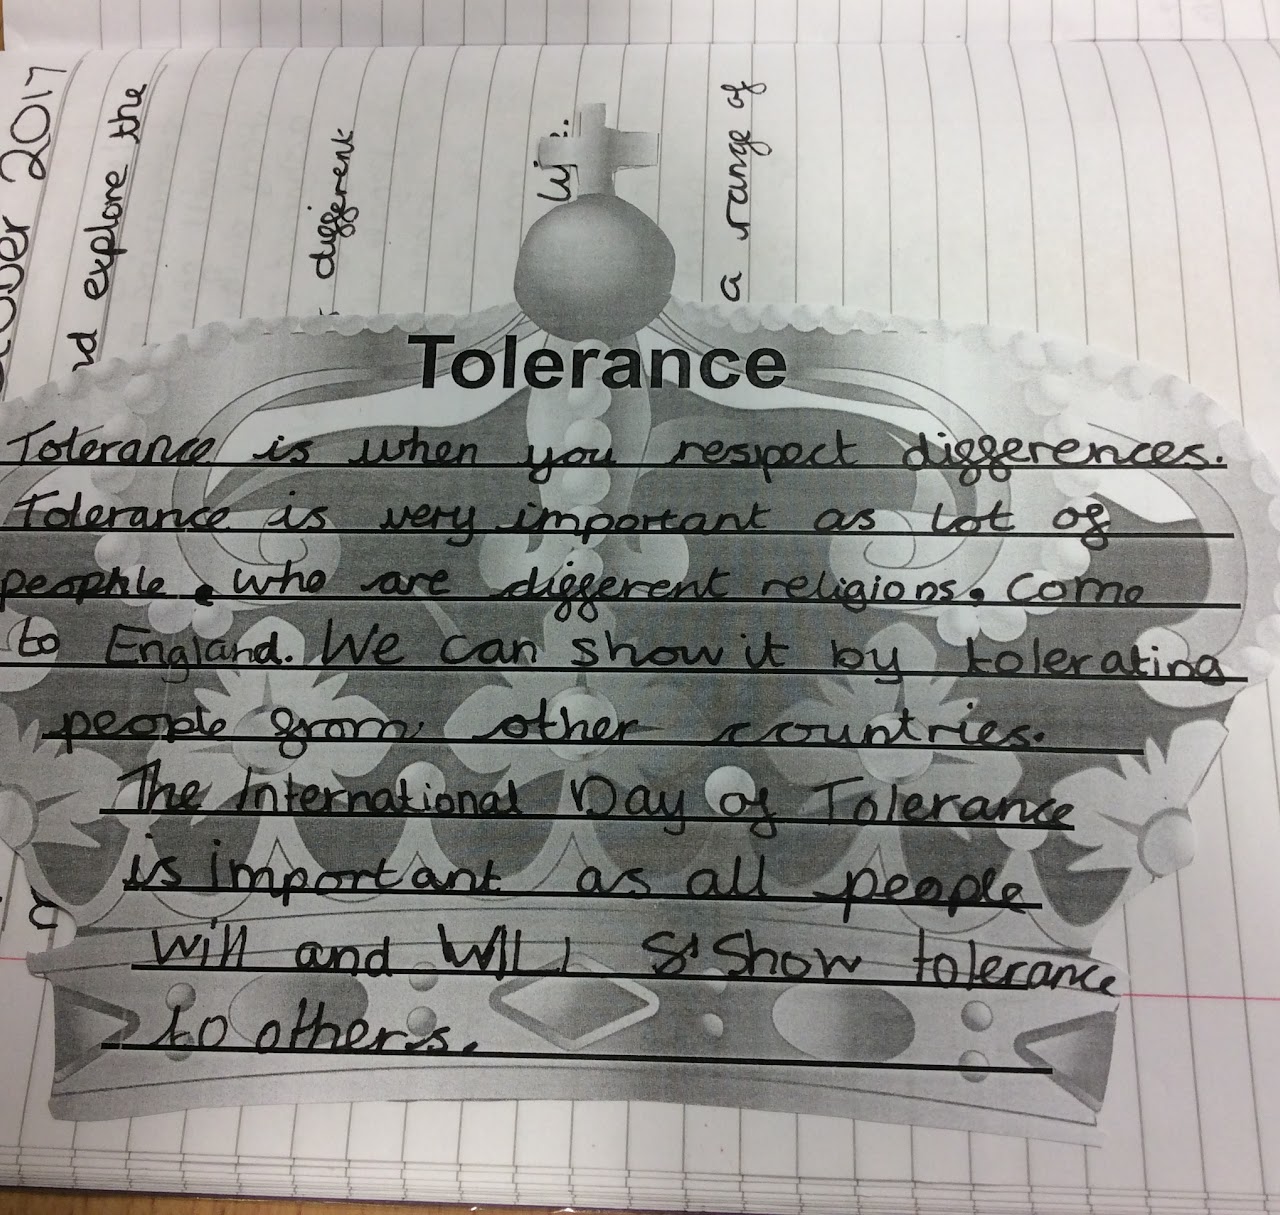 2017
explore the
different
a range of
Tolerance
Tolerance is when you respect differences.
Tolerance is very important as lot of
people, who are different religions, come
to England. We can show it by tolerating
people from other countries.
The International Day of Tolerance
is important as all people
will and WILL Show tolerance
to others.